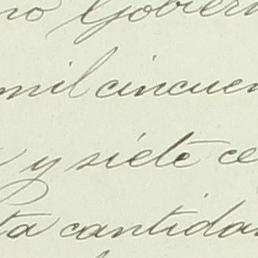 no Gobiern
mil cincuen
y siete ce
ta cantidad